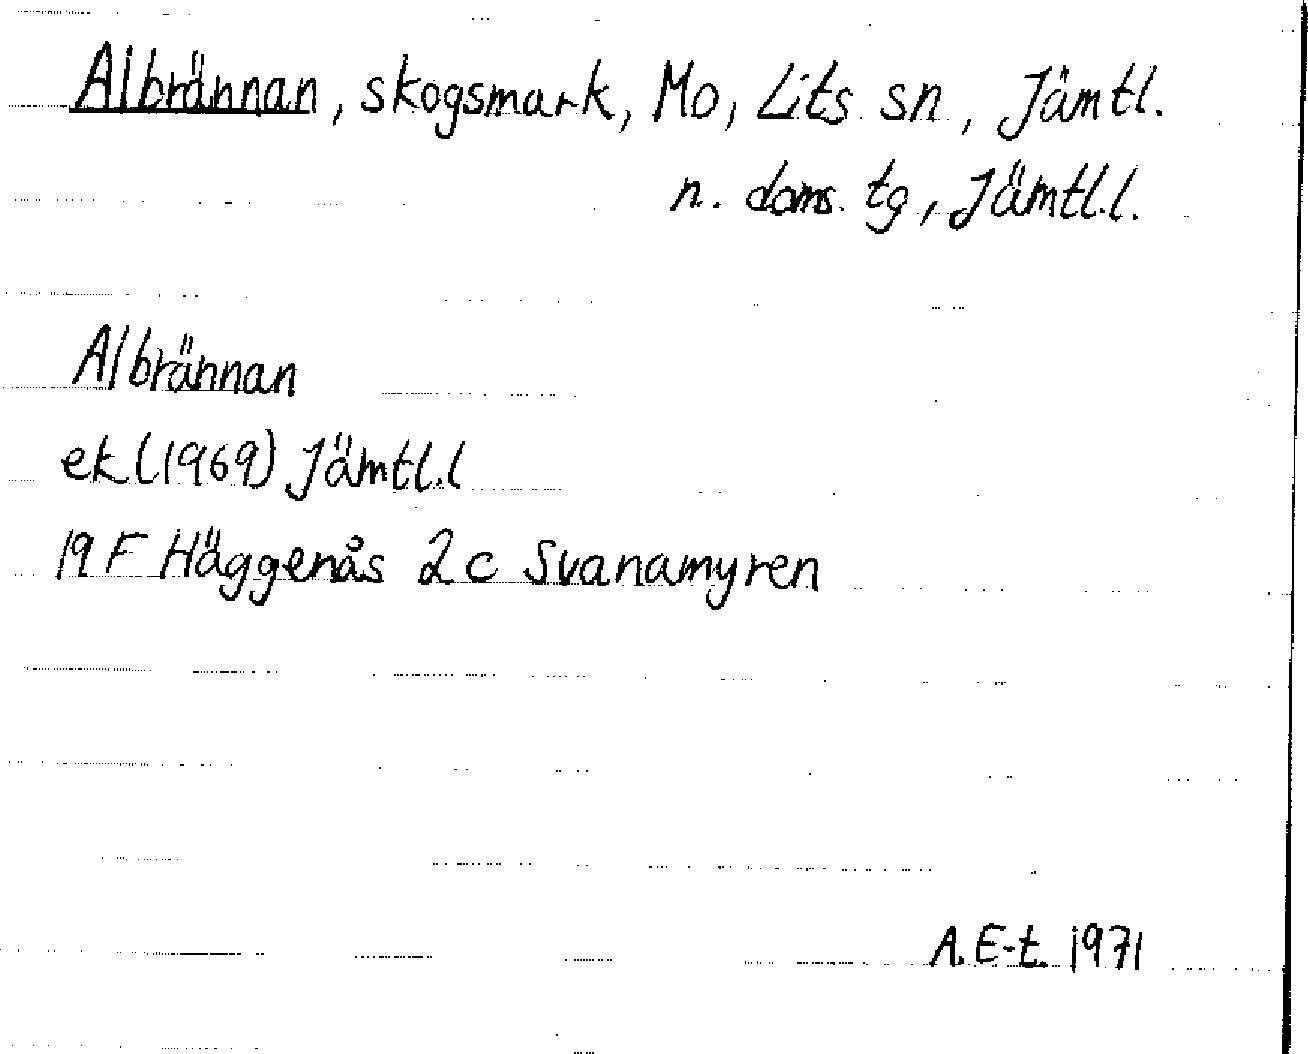 Albrännan, skogsmark, Mo, Lits sn, Jämtl.
n. doms. tg, Jämtl.l.
Albrännan
ek (1969) Jämtl.l
19 F Häggenås 2 c Svanamyren
A. E-t. 1971